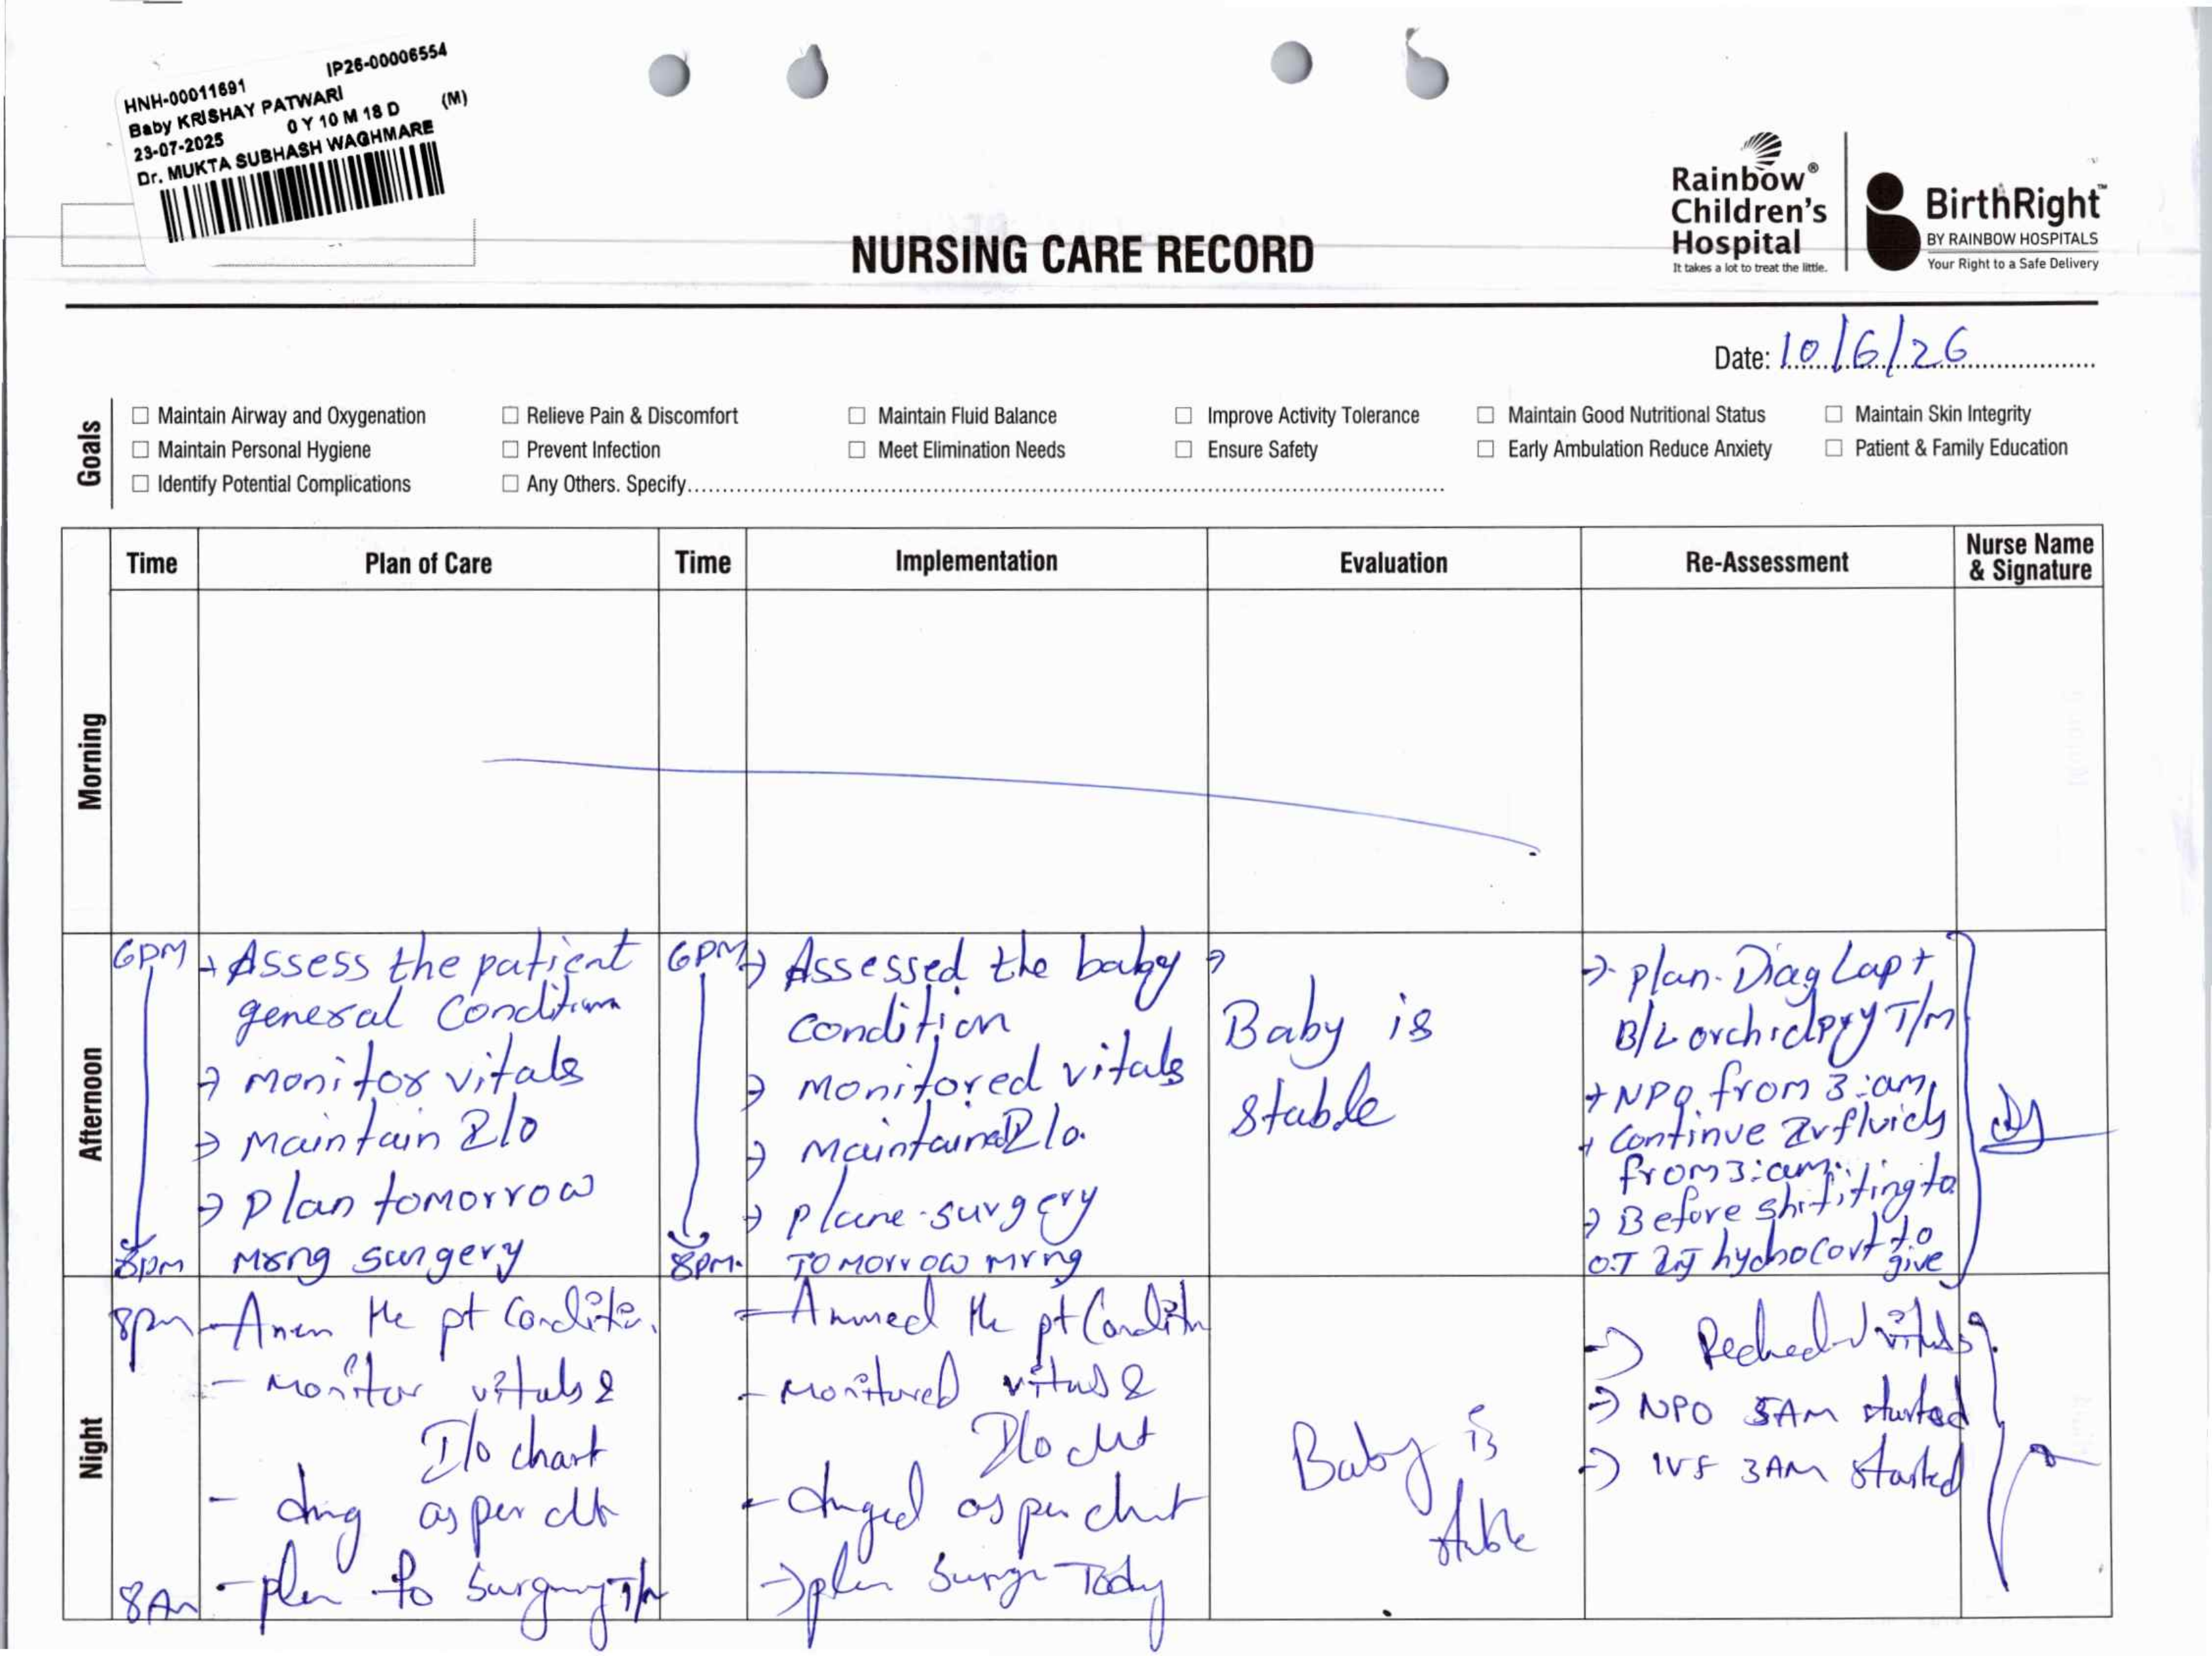 HNH-00011691 IP26-00006554
Baby KRISHAY PATWARI
23-07-2025 0 Y 10 M 18 D (M)
Dr. MUKTA SUBHASH WAGHMARE
Rainbow®
Children's
Hospital
It takes a lot to treat the little.
BirthRight™
BY RAINBOW HOSPITALS
Your Right to a Safe Delivery
NURSING CARE RECORD
Date: 10/6/26
Goals
☐ Maintain Airway and Oxygenation ☐ Relieve Pain & Discomfort ☐ Maintain Fluid Balance ☐ Improve Activity Tolerance ☐ Maintain Good Nutritional Status ☐ Maintain Skin Integrity
☐ Maintain Personal Hygiene ☐ Prevent Infection ☐ Meet Elimination Needs ☐ Ensure Safety ☐ Early Ambulation Reduce Anxiety ☐ Patient & Family Education
☐ Identify Potential Complications ☐ Any Others. Specify
Time Plan of Care Time Implementation Evaluation Re-Assessment Nurse Name & Signature
Morning
Afternoon
6PM
8pm
→ Assess the patient
general Condition
→ monitor vitals
→ Maintain I/o
→ Plan tomorrow
Mrng surgery
6PM
8PM.
→ Assessed the baby
condition
→ monitored vitals
→ Maintained I/o.
→ plane surgery
TOMORROW mrng
→
Baby is
stable
→ plan Diag Lap +
B/L orchidpxy T/m
→ NPO from 3:am
→ Continue Ivfluids
from 3:am
→ Before shifiting to
O.T Inj hydrocort to
give
Night
8pm
8Am
- the pt Condition
- monitor vitals &
I/o chart
- drug as per
- plan to surgery T/m
- the pt Condition
- monitored vitals &
I/o
- as per chart
→ plan Today
Baby is
stable
→ vitals
→ NPO 3AM started
→ IVF 3AM started